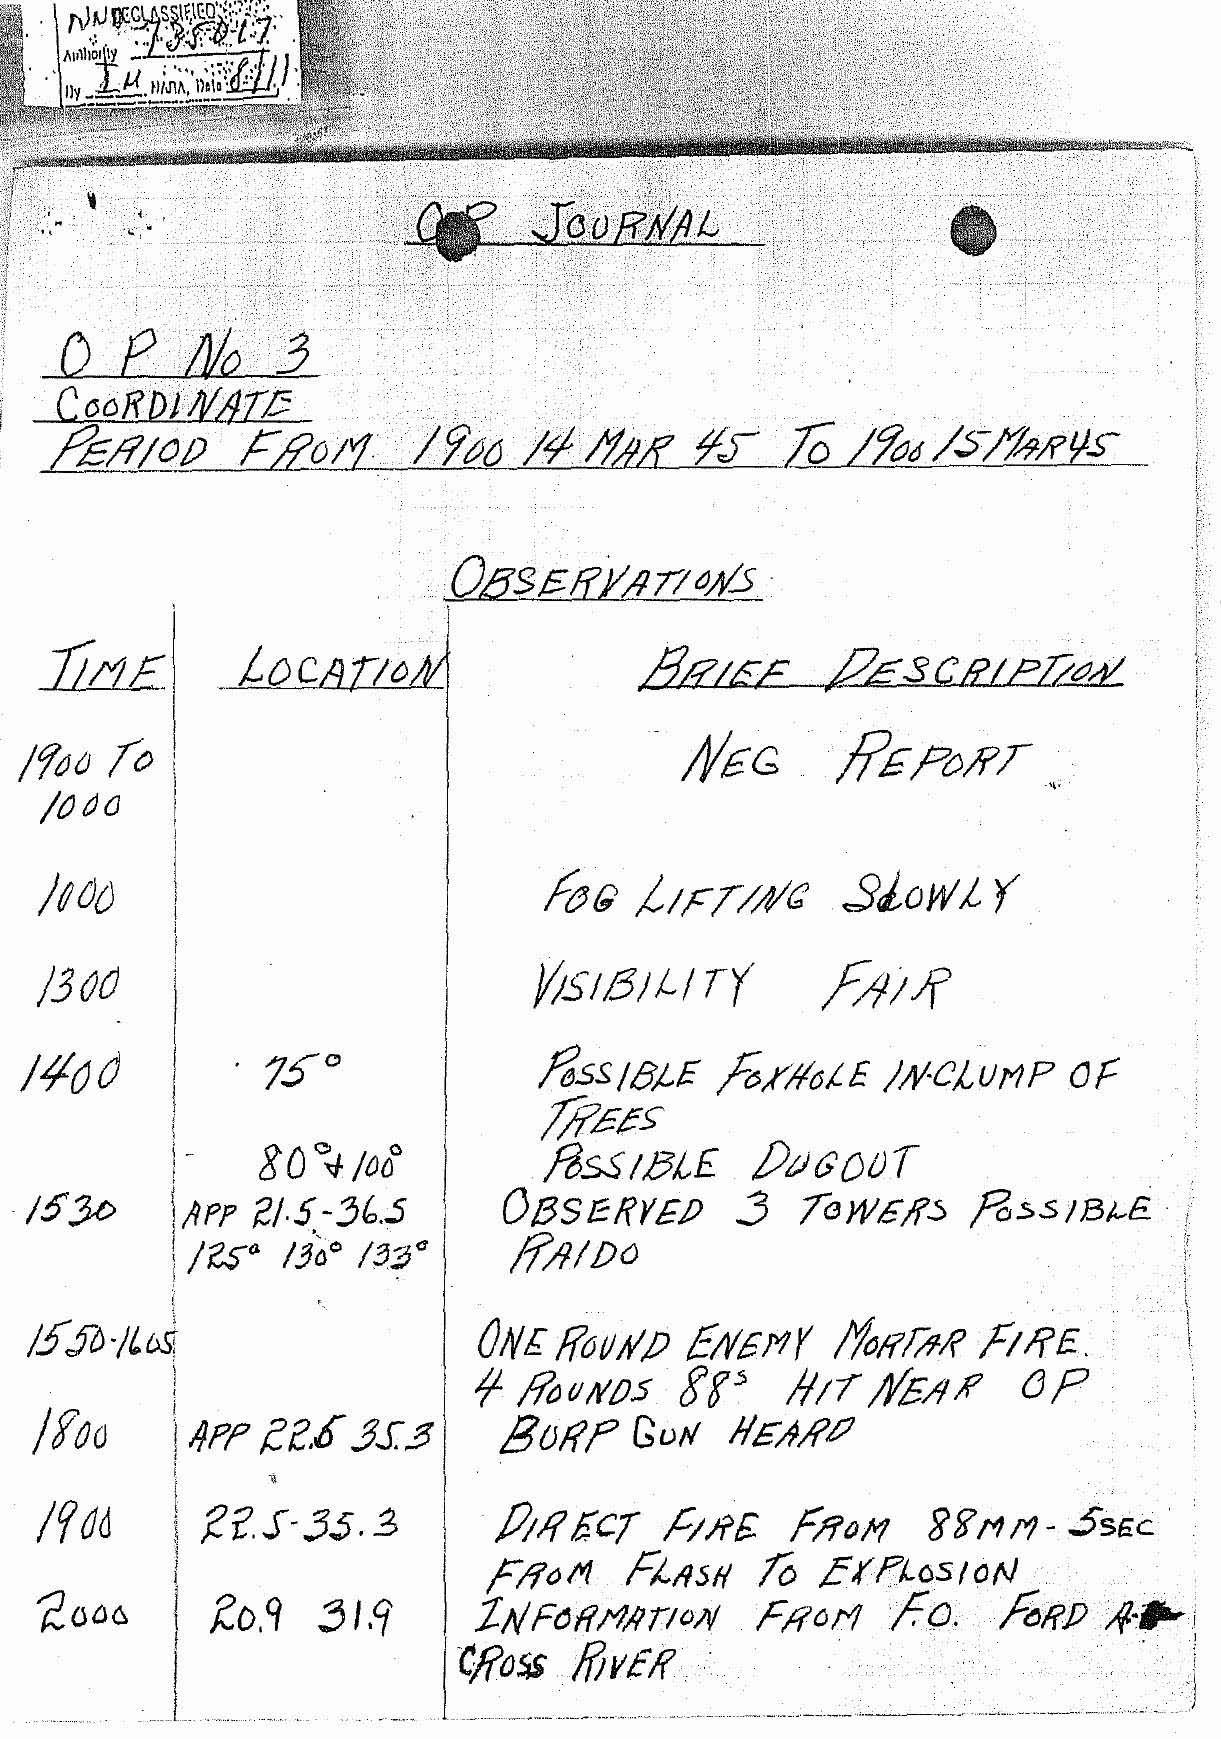 NND DECLASSIFIED
Authority 735017
By IM NARA, Date 8/11
OP JOURNAL
O P No 3
COORDINATE
PERIOD FROM 1900 14 MAR 45 TO 1900 15 MAR 45
OBSERVATIONS
TIME LOCATION BRIEF DESCRIPTION
1900 TO NEG REPORT
1000
1000 FOG LIFTING SLOWLY
1300 VISIBILITY FAIR
1400 75° POSSIBLE FOXHOLE IN CLUMP OF
TREES
80° + 100° POSSIBLE DUGOUT
1530 APP 21.5-36.5 OBSERVED 3 TOWERS POSSIBLE
125° 130° 133° RAIDO
1550-1605 ONE ROUND ENEMY MORTAR FIRE.
4 ROUNDS 88s HIT NEAR OP
1800 APP 22.5 35.3 BURP GUN HEARD
1900 22.5-35.3 DIRECT FIRE FROM 88MM - 5 SEC
FROM FLASH TO EXPLOSION
2000 20.9 31.9 INFORMATION FROM F.O. FORD A-
CROSS RIVER